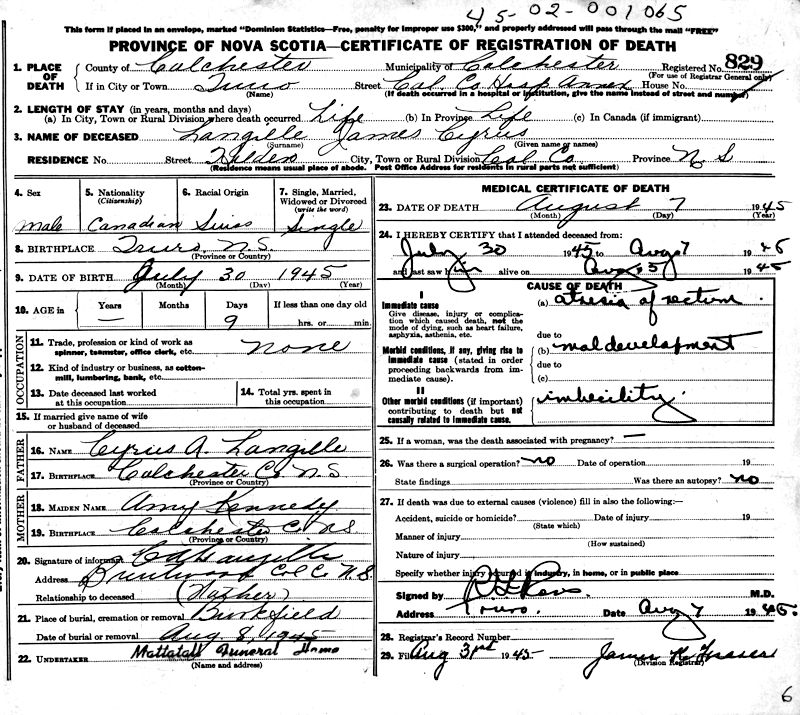 45-02-001065
This form if placed in an envelope, marked "Dominion Statistics—Free, penalty for improper use $300," and properly addressed will pass through the mail "FREE"
PROVINCE OF NOVA SCOTIA—CERTIFICATE OF REGISTRATION OF DEATH
1. PLACE OF DEATH County of Colchester Municipality of Colchester Registered No. 829
(For use of Registrar General only)
If in City or Town Truro Street Col. Co Hosp Annex House No.
(Name) (If death occurred in a hospital or institution, give the name instead of street and number)
2. LENGTH OF STAY (in years, months and days)
(a) In City, Town or Rural Division where death occurred Life (b) In Province Life (c) In Canada (if immigrant)
3. NAME OF DECEASED Langille James Cyrus
(Surname) (Given name or names)
RESIDENCE No. Street Hilden City, Town or Rural Division Col Co. Province N S
(Residence means usual place of abode. Post Office Address for residents in rural parts not sufficient)
4. Sex 5. Nationality (Citizenship) 6. Racial Origin 7. Single, Married, Widowed or Divorced (write the word)
male Canadian Swiss Single
8. BIRTHPLACE Truro, N.S.
(Province or Country)
9. DATE OF BIRTH July 30 1945
(Month) (Day) (Year)
10. AGE in Years Months Days If less than one day old
— 9 hrs. or min.
OCCUPATION
11. Trade, profession or kind of work as spinner, teamster, office clerk, etc. none
12. Kind of industry or business, as cotton-mill, lumbering, bank, etc.
13. Date deceased last worked at this occupation 14. Total yrs. spent in this occupation
15. If married give name of wife or husband of deceased
FATHER
16. NAME Cyrus A. Langille
17. BIRTHPLACE Colchester Co N.S.
(Province or Country)
MOTHER
18. MAIDEN NAME Amy Kennedy
19. BIRTHPLACE Colchester Co N S
(Province or Country)
20. Signature of informant C A Langille
Address Col Co N.S.
Relationship to deceased (Father)
21. Place of burial, cremation or removal Brookfield
Date of burial or removal Aug. 8, 1945
22. UNDERTAKER Mattatall Funeral Home
(Name and address)
MEDICAL CERTIFICATE OF DEATH
23. DATE OF DEATH August 7 1945
(Month) (Day) (Year)
24. I HEREBY CERTIFY that I attended deceased from:
July 30 1945 to Aug 7 1945
and last saw him alive on Aug 5 1945
CAUSE OF DEATH
I
Immediate cause
Give disease, injury or complication which caused death, not the mode of dying, such as heart failure, asphyxia, asthenia, etc.
(a) atresia of rectum.
due to
Morbid conditions, if any, giving rise to immediate cause (stated in order proceeding backwards from immediate cause).
(b) mal development
due to
(c)
II
Other morbid conditions (if important) contributing to death but not causally related to immediate cause.
imbecility.
25. If a woman, was the death associated with pregnancy? —
26. Was there a surgical operation? no Date of operation 19
State findings Was there an autopsy? no
27. If death was due to external causes (violence) fill in also the following:—
Accident, suicide or homicide? Date of injury 19
(State which)
Manner of injury
(How sustained)
Nature of injury
Specify whether injury occurred in industry, in home, or in public place
Signed by M.D.
Address Truro. Date Aug 7 1945.
28. Registrar's Record Number
29. Filed Aug 31st 1945 James Fraser
(Division Registrar)
6